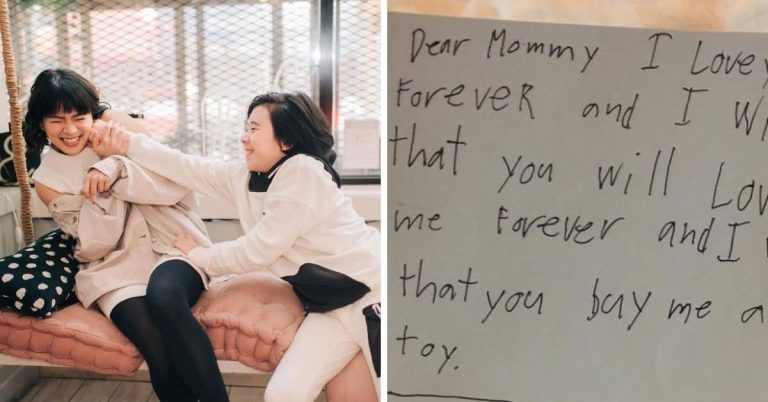 Dear Mommy I Love y
Forever and I Wi
that you will Lov
me Forever and I
that you buy me a
toy.